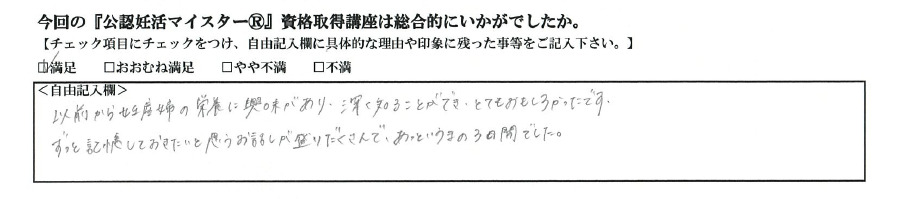 今回の『公認妊活マイスター®』資格取得講座は総合的にいかがでしたか。
【チェック項目にチェックをつけ、自由記入欄に具体的な理由や印象に残った事等をご記入下さい。】
☑満足　□おおむね満足　□やや不満　□不満
＜自由記入欄＞
以前から妊産婦の栄養に興味があり、深く知ることができ、とてもおもしろかったです。
ずっと記憶しておきたいと思うお話しが盛りだくさんで、あっというまの3日間でした。